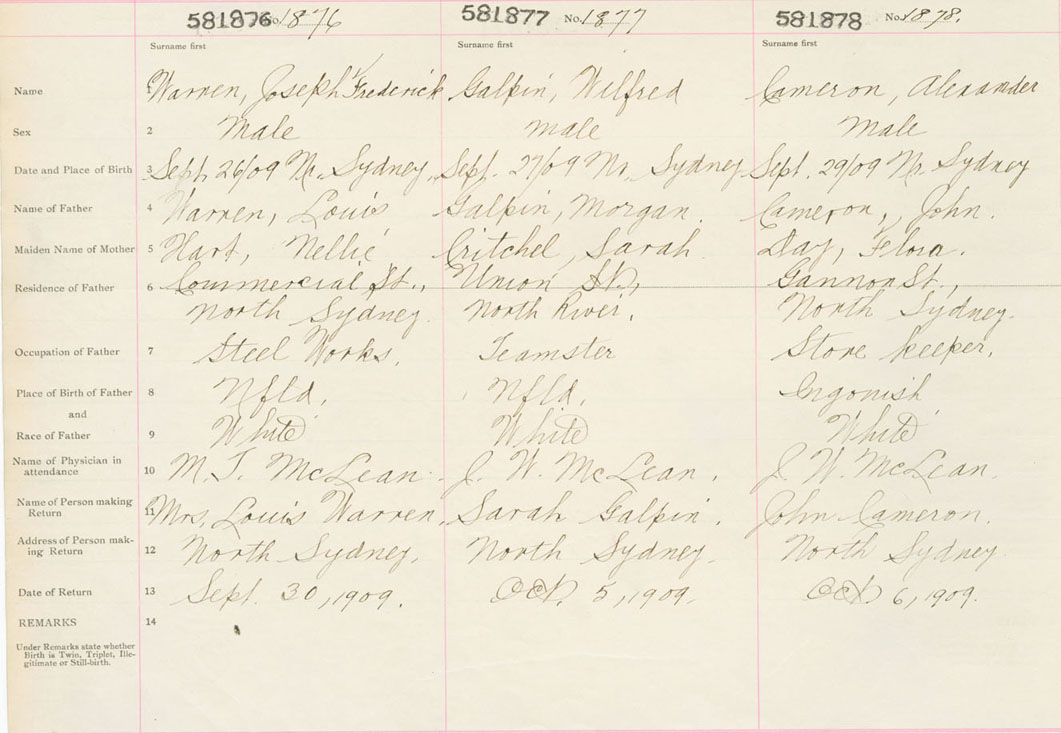 581876 No. 1876 581877 No. 1877 581878 No. 1878.
Surname first Surname first Surname first
Name 1 Warren, Joseph Frederick Galpin, Wilfred Cameron, Alexander
Sex 2 Male Male Male
Date and Place of Birth 3 Sept. 26/09 Nr. Sydney. Sept. 27/09 Nr. Sydney Sept. 29/09 Nr. Sydney
Name of Father 4 Warren, Louis Galpin, Morgan. Cameron, John.
Maiden Name of Mother 5 Hart, Nellie Critchel, Sarah Day, Flora.
Residence of Father 6 Commercial St., Union St., Gannon St.,
North Sydney. North River. North Sydney.
Occupation of Father 7 Steel Works. Teamster Store keeper.
Place of Birth of Father 8 Nfld. Nfld. Ingonish
and
Race of Father 9 White White White
Name of Physician in
attendance 10 M. T. McLean J. W. McLean. J. W. McLean.
Name of Person making
Return 11 Mrs. Louis Warren. Sarah Galpin. John Cameron.
Address of Person mak-
ing Return 12 North Sydney. North Sydney. North Sydney.
Date of Return 13 Sept. 30, 1909. Oct. 5, 1909. Oct 6, 1909.
REMARKS 14
Under Remarks state whether
Birth is Twin, Triplet, Ille-
gitimate or Still-birth.